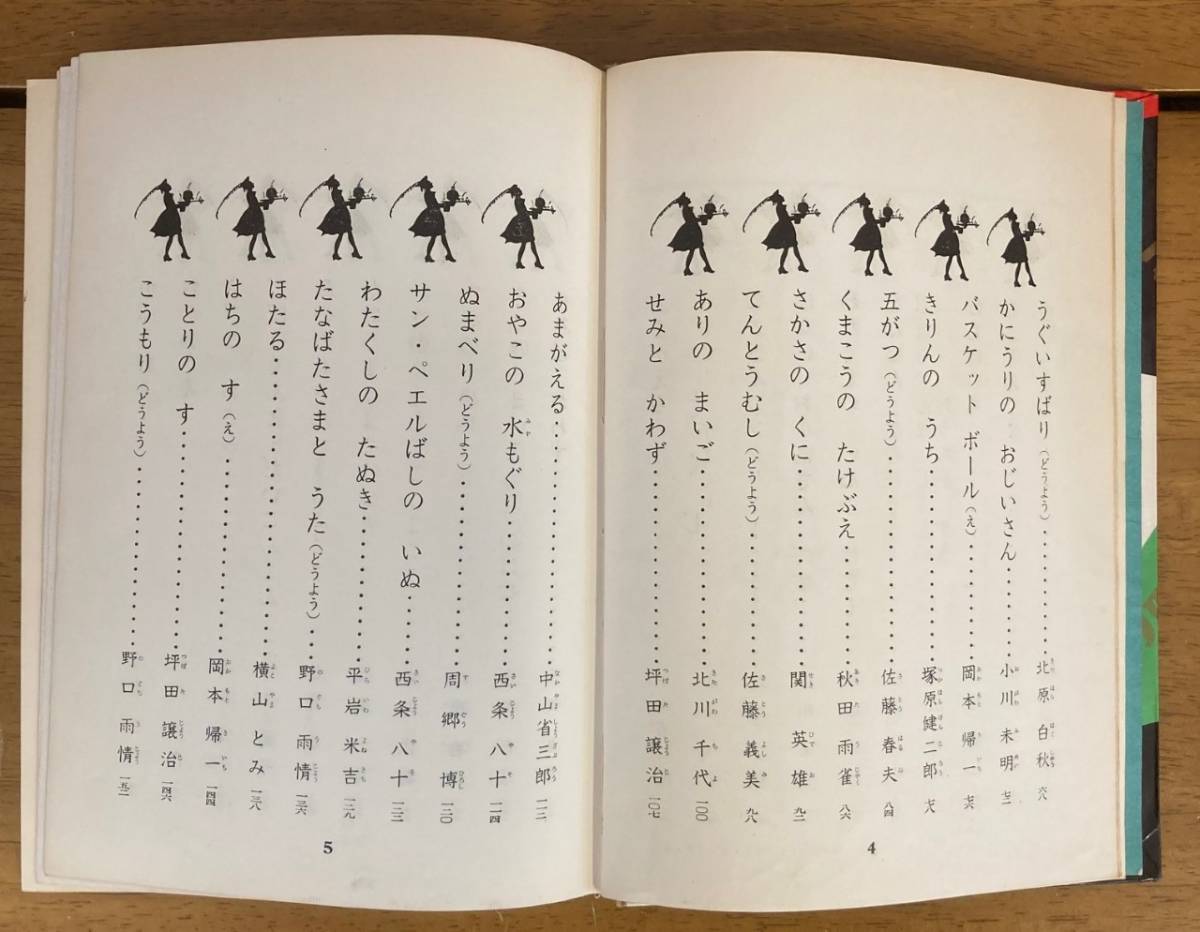 うぐいすばり（どうよう）…………北原白秋 六八
かにうりの おじいさん…………小川未明 七二
バスケット ボール（え）…………岡本帰一 七六
きりんの うち…………塚原健二郎 七八
五がつ（どうよう）…………佐藤春夫 八四
くまこうの たけぶえ…………秋田雨雀 八六
さかさの くに…………関英雄 九二
てんとうむし（どうよう）…………佐藤義美 九八
ありの まいご…………北川千代 一〇〇
せみと かわず…………坪田譲治 一〇七
4
あまがえる…………中山省三郎 一一二
おやこの 水もぐり…………西条八十 一一四
ぬまべり（どうよう）…………周郷博 一二〇
サン・ペエルばしの いぬ…………西条八十 一二二
わたくしの たぬき…………平岩米吉 一二九
たなばたさまと うた（どうよう）…野口雨情 一三六
ほたる…………横山とみ 一三八
はちの す（え）…………岡本帰一 一四四
ことりの す…………坪田譲治 一四六
こうもり（どうよう）…………野口雨情 一五二
5